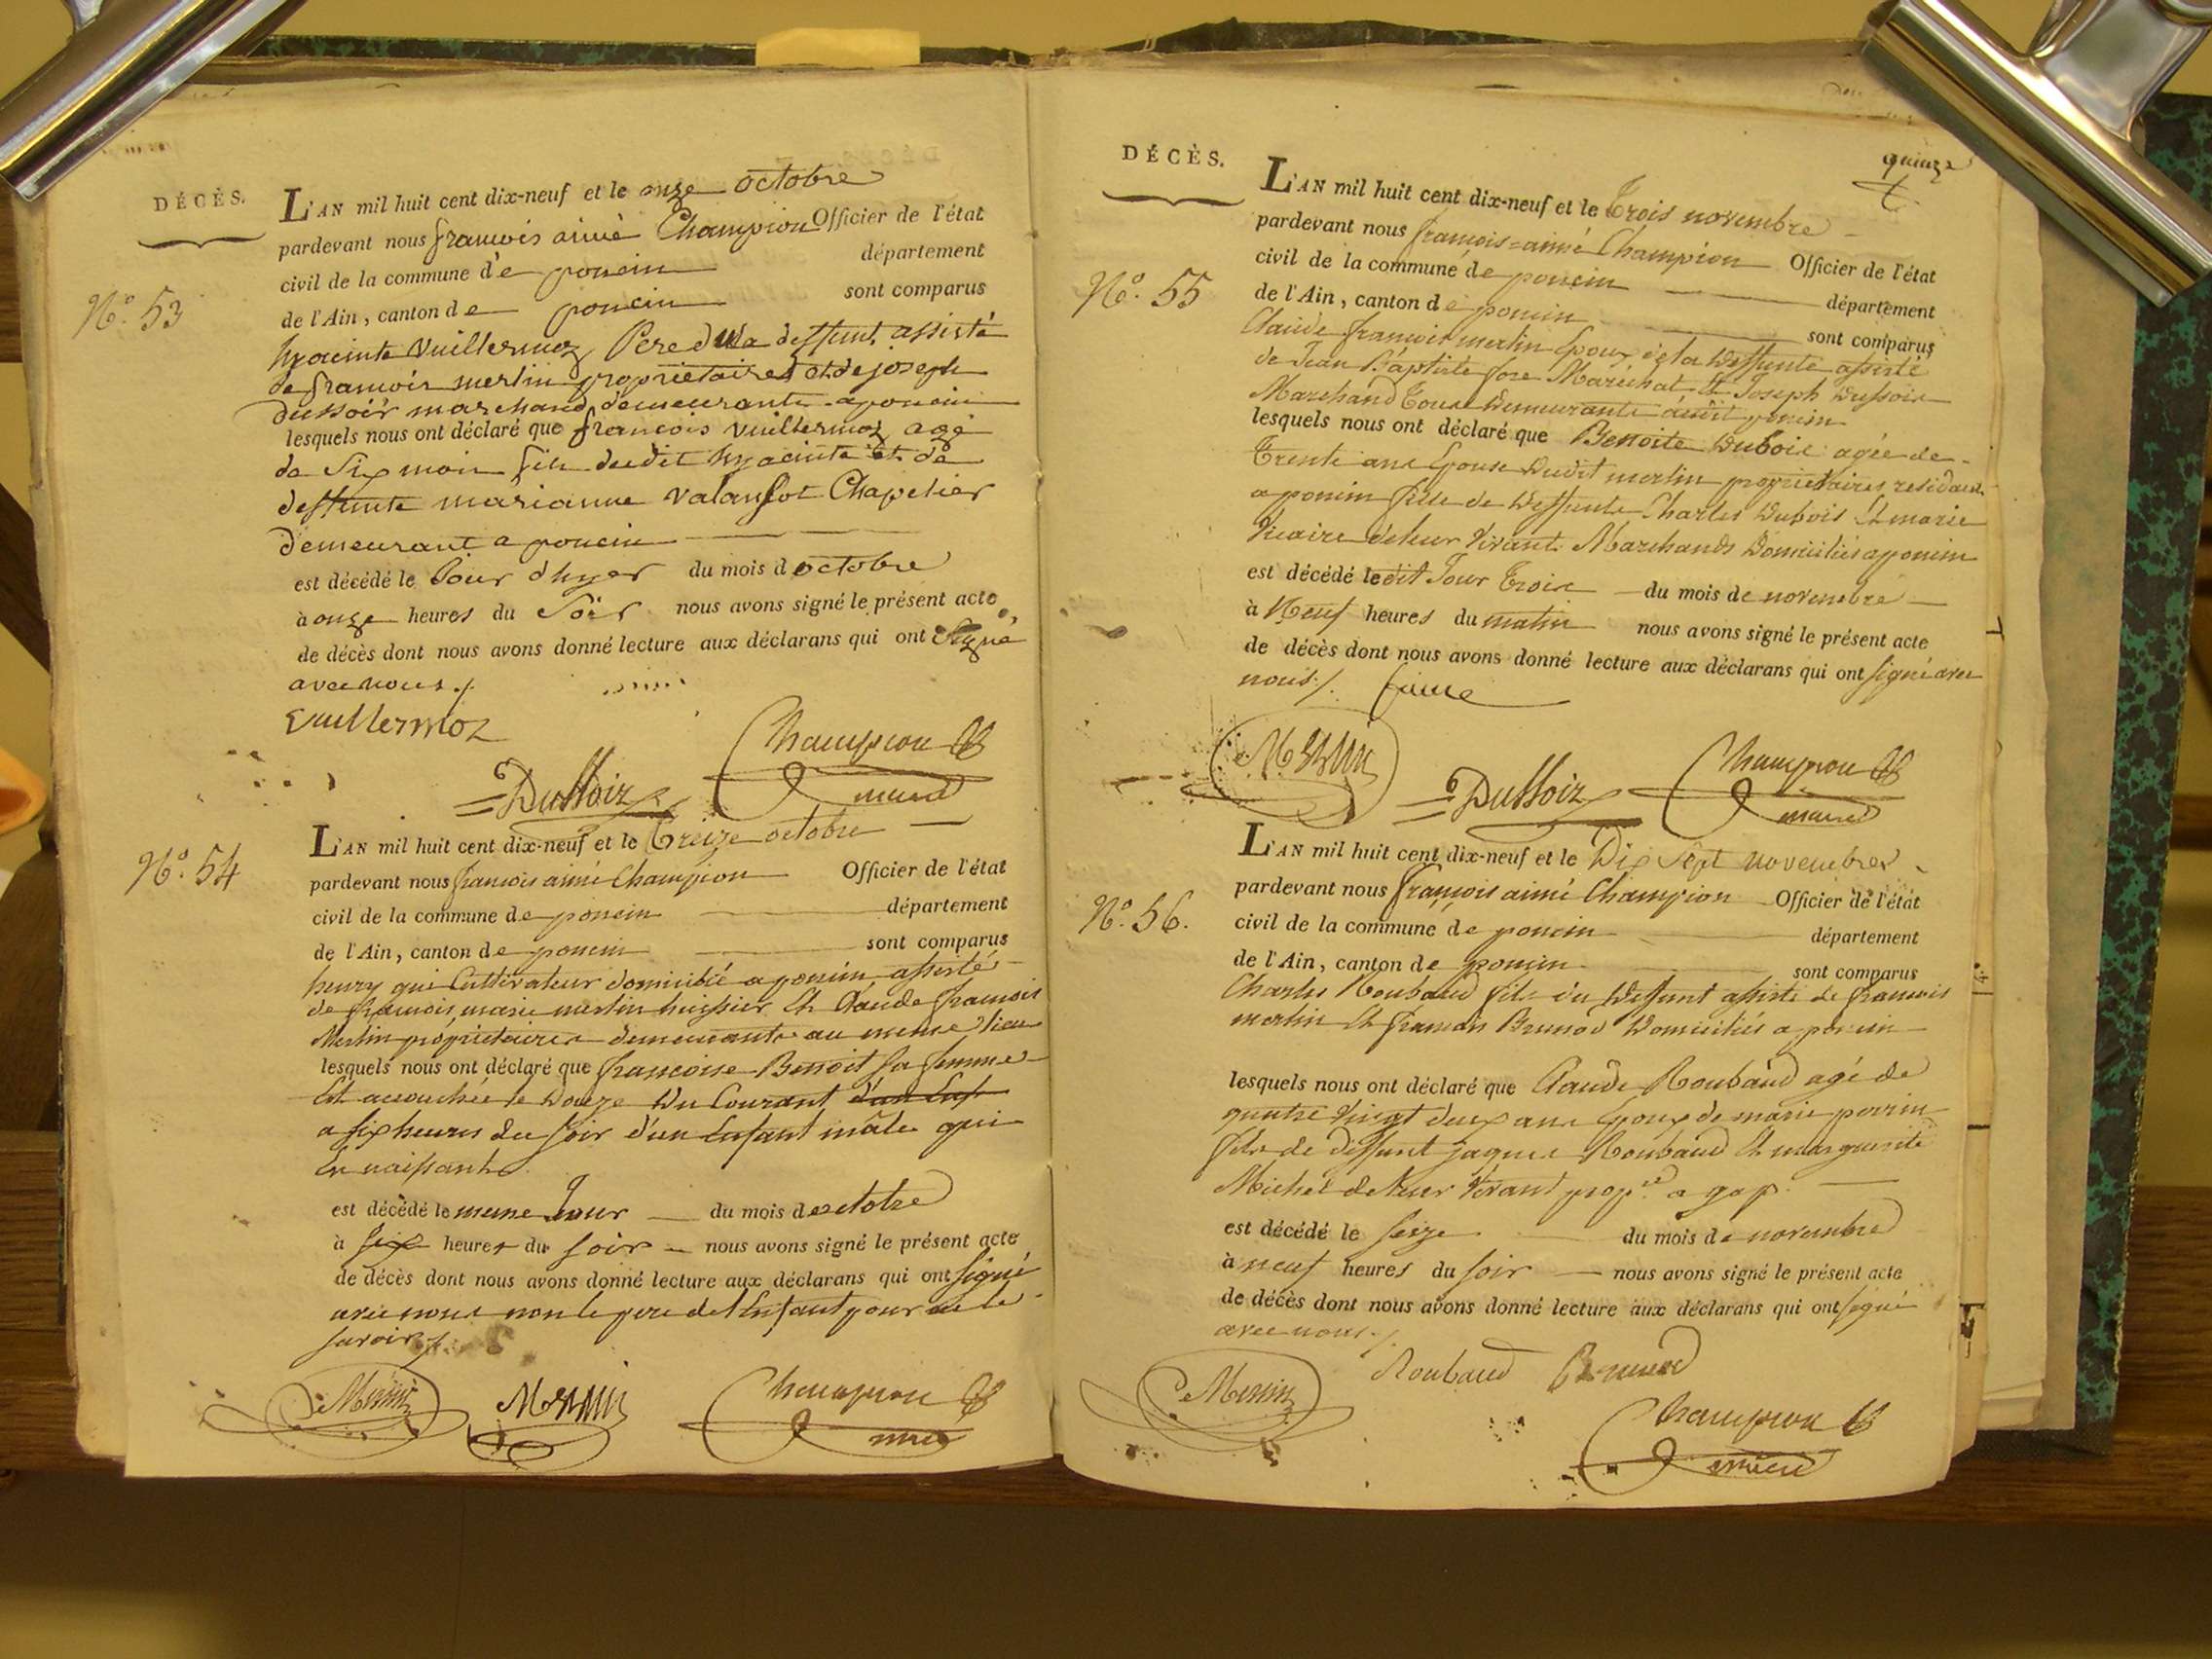 DÉCÈS.
L'AN mil huit cent dix-neuf et le onze octobre
pardevant nous francois aimé Champion Officier de l'état
civil de la commune de poncin département
de l'Ain, canton de poncin sont comparus
N.º 53
hyacinte Vuillermoz Pere du deffunt assisté
de francois merlin propriétaire et de joseph
dussoir marchand demeurants a poncin
lesquels nous ont déclaré que francois Vuillermoz agé
de Six mois fils dudit hyacinte et de
deffunte marianne valansot Chapelier
demeurant a poncin
est décédé le Jour d'hyer du mois d octobre
à onze heures du Soir nous avons signé le présent acte
de décès dont nous avons donné lecture aux déclarans qui ont Signé
avec nous ./.
Vuillermoz
Champion
Dussoir maire
L'AN mil huit cent dix-neuf et le Treize octobre
N.º 54
pardevant nous francois aimé Champion Officier de l'état
civil de la commune de poncin département
de l'Ain, canton de poncin sont comparus
henry gui Cultivateur domicilié a poncin assisté
de francois marie merlin huissier Et Claude francois
Merlin propriétaires demeurants au meme lieu
lesquels nous ont déclaré que francoise Benoit sa femme
Est accouchée le Douze Du Courant d'un Enf
a six heures du soir d'un Enfant mâle qui
En naissant
est décédé le meme Jour du mois d octobre
à six heures du soir nous avons signé le présent acte
de décès dont nous avons donné lecture aux déclarans qui ont signé
avec nous non le pere de l'Enfant pour ne le
savoir ./.
Merlin Merlin Champion
maire
quinze
DÉCÈS.
L'AN mil huit cent dix-neuf et le Trois novembre
pardevant nous francois=aimé Champion Officier de l'état
civil de la commune de poncin département
N.º 55
de l'Ain, canton de poncin sont comparus
Claude francois merlin Epoux de la Deffunte assisté
de Jean Baptiste Maréchal Et Joseph Dussoir
Marchand Tous Demeurants audit poncin
lesquels nous ont déclaré que Benoite Dubois agée de
Trente ans Epouse Dudit merlin propriétaires residants
a poncin fille de Deffunts Charles Dubois Et marie
Vicaire de leur Vivant Marchands Domiciliés a poncin
est décédé ledit Jour Trois du mois de novembre
à Neuf heures du matin nous avons signé le présent acte
de décès dont nous avons donné lecture aux déclarans qui ont signé avec
nous ./.
Merlin
Dussoir Champion
maire
L'AN mil huit cent dix-neuf et le Dix Sept novembre
pardevant nous francois aimé Champion Officier de l'état
N.º 56.
civil de la commune de poncin département
de l'Ain, canton de poncin sont comparus
Charles Roubaud fils du Deffunt assisté de francois
merlin Et francois Brunod Domiciliés a poncin
lesquels nous ont déclaré que Claude Roubaud agé de
quatre Vingt deux ans Epoux de marie perrin
fils de deffunt jaques Roubaud Et marguerite
Michel de leur Vivant prop.re a gap
est décédé le seize du mois de novembre
à neuf heures du soir nous avons signé le présent acte
de décès dont nous avons donné lecture aux déclarans qui ont signé
avec nous ./.
Merlin Roubaud Brunod
Champion
maire